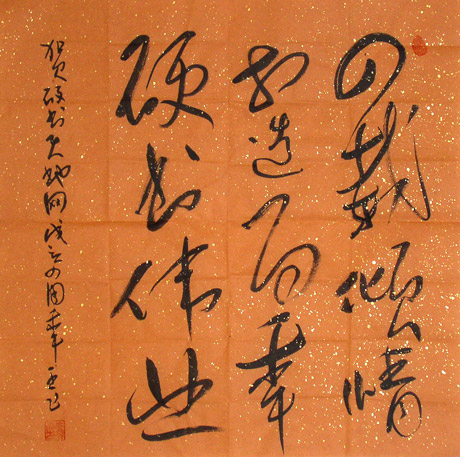 四载倾情
打造百年
硬书伟业
贺硬书天地网成立四周年